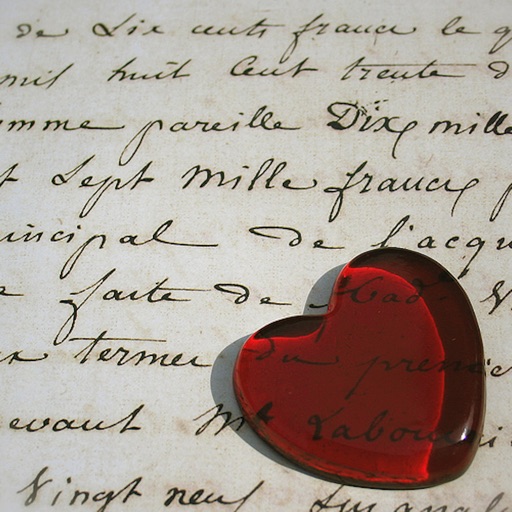 de Six cents francs le
mil huit Cent trente
omme pareille Dix mille
t Sept mille francs
incipal de l'acqu
faite de Mad.e
termes du premie
evant Me Labou
Vingt neuf